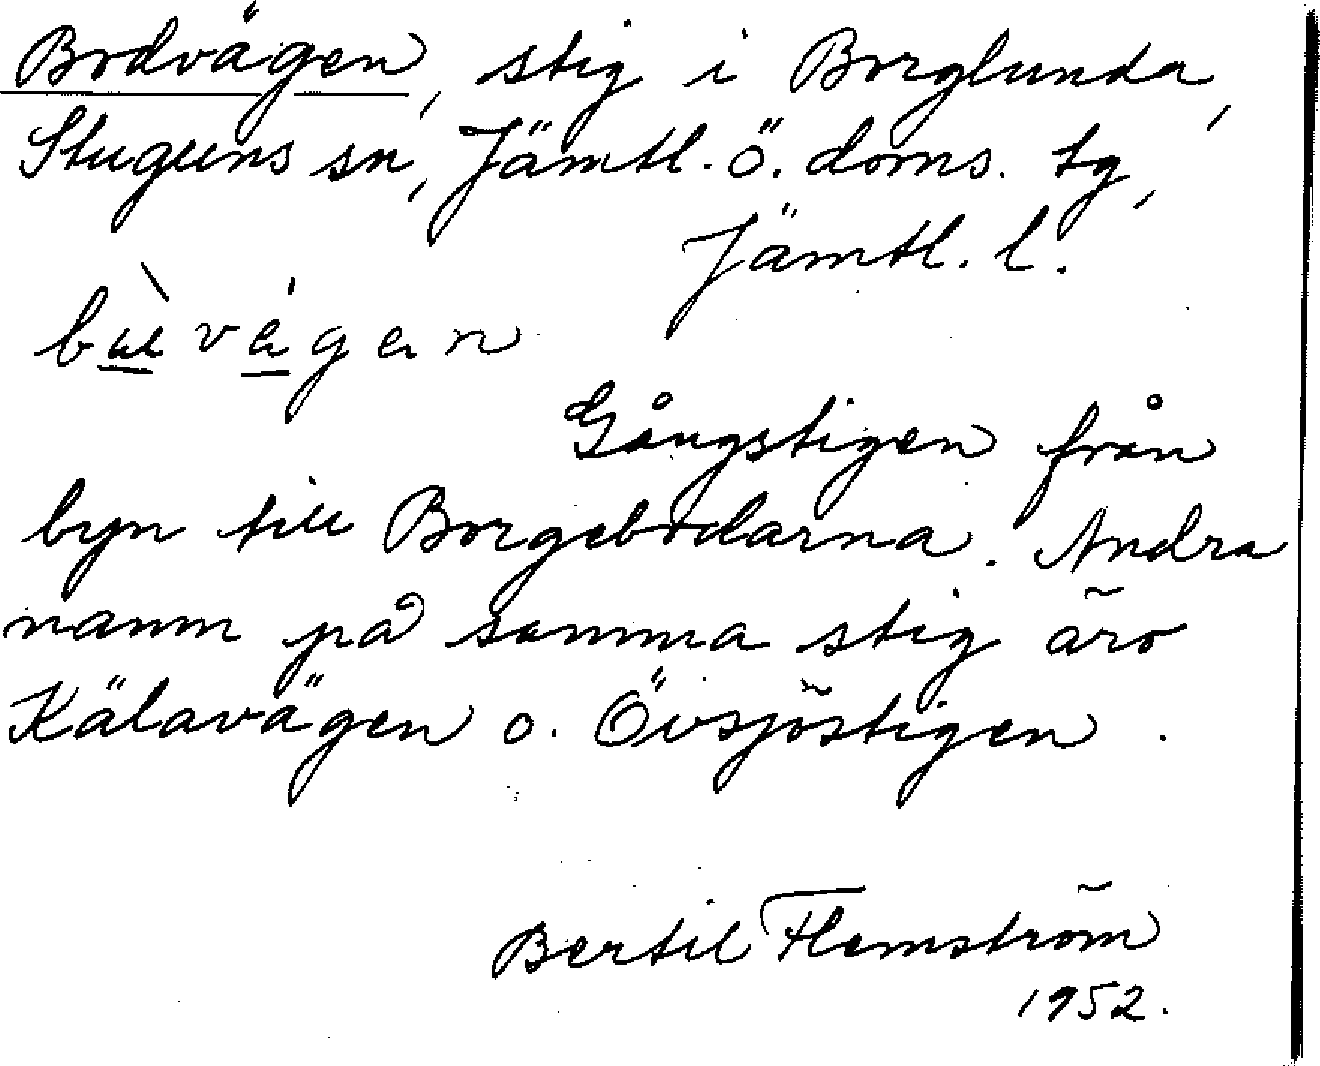 Bodvägen, stig i Borglunda,
Stuguns sn, Jämtl. ö. doms. tg,
Jämtl. l.
bu̲ὲvá̲gan
Gångstigen från
byn till Borgebodarna. Andra
namn på samma stig äro
Kälavägen o. Övsjöstigen.
Bertil Flemström
1952.